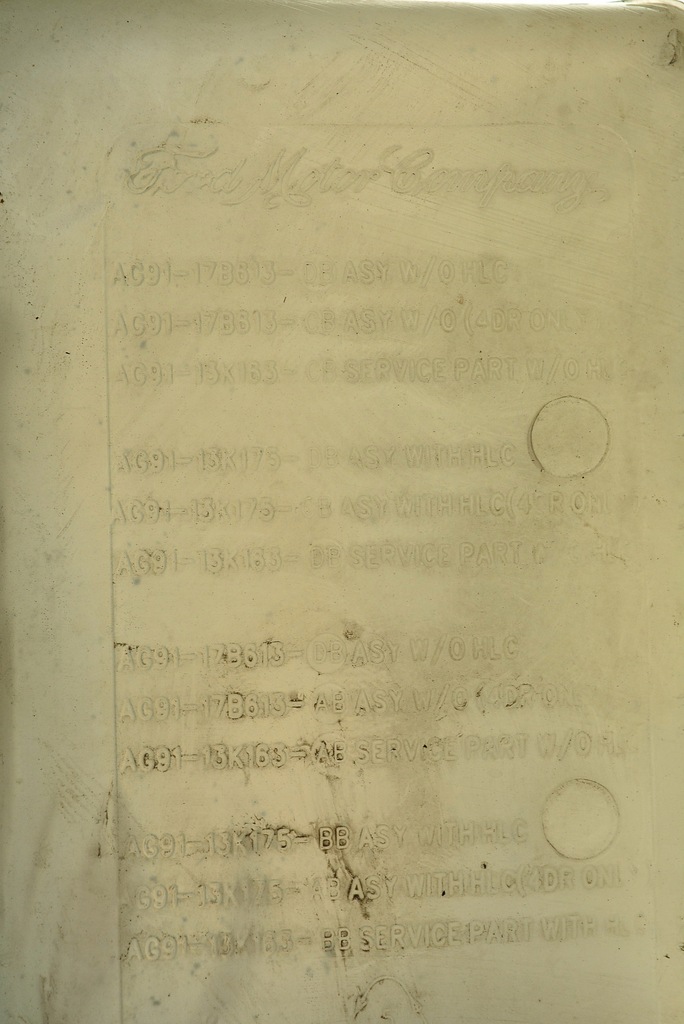 Ford Motor Company
AG91-17B613- DB ASY W/O HLC
AG91-17B613- CB ASY W/O (4DR ON
AG91-13K163- CB SERVICE PART W/O H
AG91-13K175- DB ASY WITH HLC
AG91-13K175- CB ASY WITH HLC(4DR ON
AG91-13K163- DB SERVICE PART
AG91-17B613- DB ASY W/O HLC
AG91-17B613- AB ASY W/O (4DR ON
AG91-13K163- AB SERVICE PART W/O H
AG91-13K175- BB ASY WITH HLC
AG91-13K175- AB ASY WITH HLC(4DR ONL
AG91-13K163- BB SERVICE PART WITH H